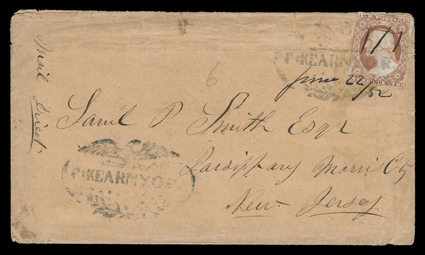 Mail Direct
Ft KEARNY O.R
6
June 22
/52
Saml P Smith Esqr
Parsippany Morris Co
New Jersey
Ft KEARNY O.R